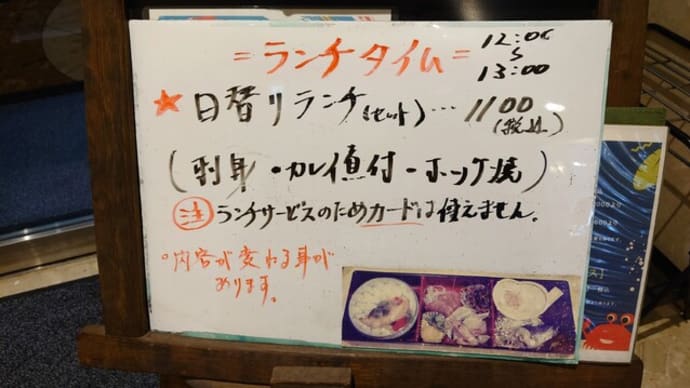 =ランチタイム=
12:00
〜
13:00
★日替りランチ(セット)…1100
(税込)
(刺身・カレイ煮付・ホッケ焼)
注 ランチサービスのためカードは使えません。
○内容が変わる事が
あります。